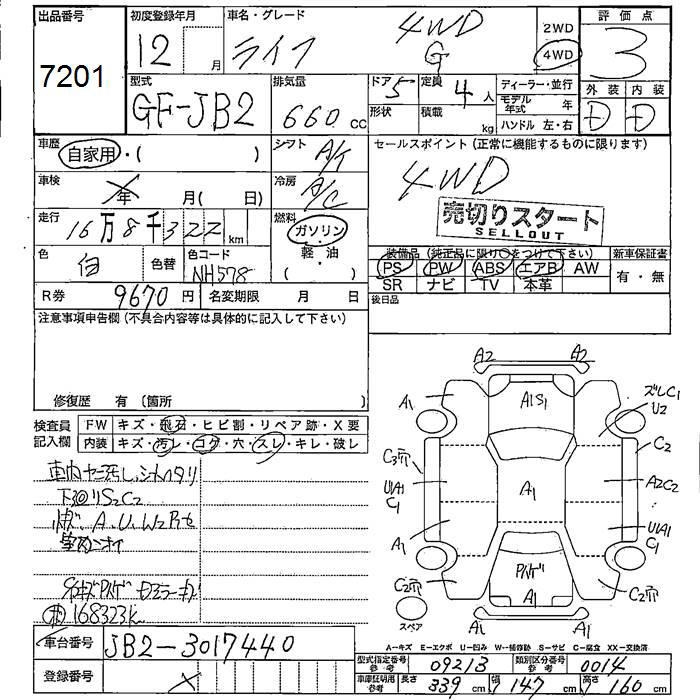 出品番号
7201
初度登録年月
12 月
車名・グレード
ライフ 4WD G
2WD
4WD
評価点
3
外装 内装
D D
型式
GF-JB2
排気量
660 cc
ドア 5
形状
定員 4 人
積載 kg
ディーラー・並行
モデル年式 年
ハンドル 左・右
車歴
自家用・( )
シフト A/T
セールスポイント (正常に機能するものに限ります)
4WD
車検
年 月( 日)
冷房 A/C
売切りスタート
SELLOUT
走行
16万8千322 km
燃料
ガソリン
軽・油
( )
色 白
色替
色コード
NH578
装備品 (純正品に限り○をつけて下さい)
PS PW ABS エアB AW
SR ナビ TV 本革
新車保証書
有・無
R券 9670 円
名変期限 月 日
後日品
注意事項申告欄 (不具合内容等は具体的に記入して下さい)
修復歴 有 (箇所
検査員記入欄
FW キズ・飛石・ヒビ割・リペア跡・X要
内装 キズ・汚レ・コゲ・穴・スレ・キレ・破レ
下回りS2C2
168323K
車台番号 JB2-3017440
登録番号
A2 A2
A1 A1S1 ズレC1
U2
C2
C3穴
U1A1
C1
A1
A2C2
A1
U1A1
C1
C2穴
A1
C2穴
スペア
A1 A1
A-キズ E-エクボ U-凹み W-補修跡 S-サビ C-腐食 XX-交換済
型式指定番号参考 09213 類別区分番号参考 0014
車庫証明用参考 長さ 339 cm 幅 147 cm 高さ 160 cm